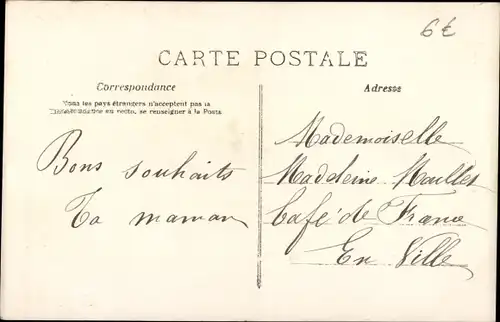 6€
CARTE POSTALE
Correspondance
Tous les pays étrangers n'acceptent pas la
Correspondance au verso, se renseigner à la Poste
Adresse
Bons souhaits
Ta maman
Mademoiselle
Madeleine Maillet
Café de France
En Ville